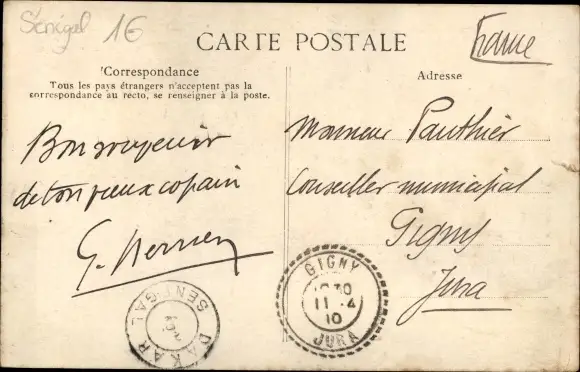 Sénégal 1€
CARTE POSTALE
France
Correspondance
Tous les pays étrangers n'acceptent pas la
correspondance au recto, se renseigner à la poste.
Adresse
Bon souvenir
de ton vieux copain
G.
Monsieur Pauthier
Conseiller municipal
Gigny
Jura
GIGNY
11 4
10
JURA
DAKAR
SENEGAL